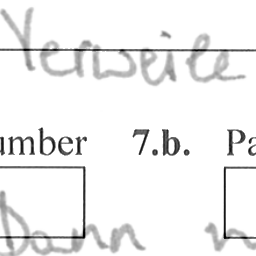 Verweile
umber 7.b. Pa
Dann